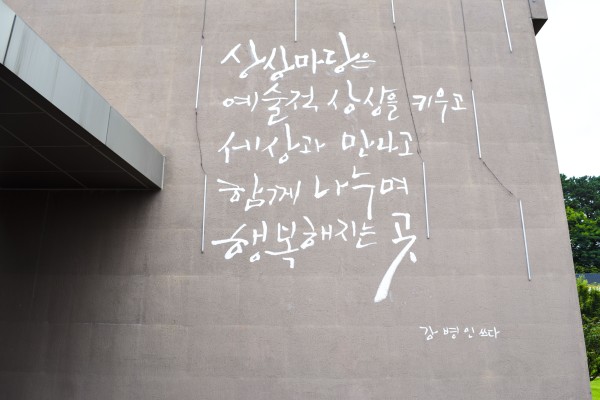 상상마당은
예술적 상상을 키우고
세상과 만나고
함께 나누며
행복해지는 곳
강병인 쓰다